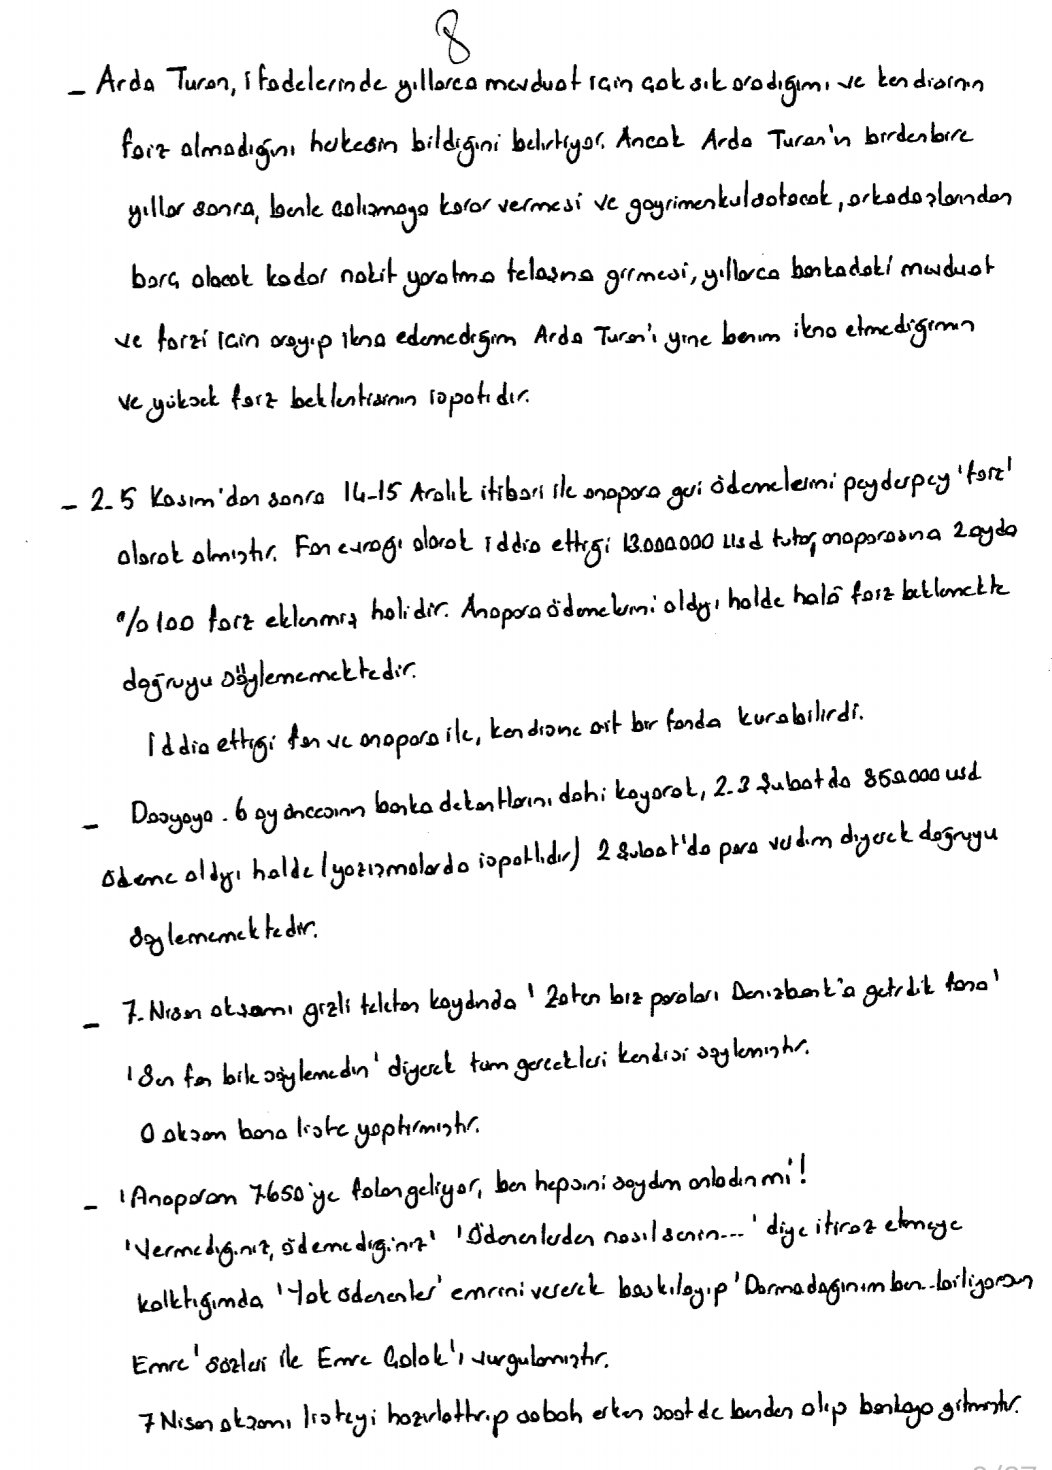 8
- Arda Turan, ifadelerinde yıllarca mevduat için çok sık aradığımı ve kendisinin
faiz almadığını herkesin bildiğini belirtiyor. Ancak Arda Turan'ın birdenbire
yıllar sonra, benle çalışmaya karar vermesi ve gayrimenkul satacak, arkadaşlarından
borç alacak kadar nakit yaratma telaşına girmesi, yıllarca bankadaki mevduat
ve faizi için arayıp ikna edemediğim Arda Turan'ı yine benim ikna etmediğimin
ve yüksek faiz beklentisinin ispatıdır.
- 2-5 Kasım'dan sonra 14-15 Aralık itibari ile anapara geri ödemelerini peyderpey 'faiz'
olarak almıştır. Fon evrağı olarak iddia ettiği 13.000.000 usd tutar, anaparasına 2 ayda
%100 faiz eklenmiş halidir. Anapara ödemelerini aldığı halde halâ faiz beklemekte
doğruyu söylememektedir.
İddia ettiği fon ve anapara ile, kendisine ait bir fonda kurabilirdi.
- Dosyaya - 6 ay öncesinin banka dekontlarını dahi koyarak, 2-3 Şubatda 850.000 usd
ödeme aldığı halde (yazışmalarda ispatlıdır) 2 Şubat'da para verdim diyerek doğruyu
söylememektedir.
- 7-Nisan akşamı gizli telefon kaydında 'Zaten biz paraları Denizbank'a getirdik fona'
'Sen fon bile söylemedin' diyerek tüm gerçekleri kendisi söylemiştir.
O akşam bana liste yaptırmıştır.
- 'Anaparam 7650'ye falan geliyor, ben hepsini saydım anladın mı'!
'Vermediğiniz, ödemediğiniz' 'Ödenenlerden nasıl senin...' diye itiraz etmeye
kalktığımda 'Yok ödenenler' emrini vererek baskılayıp 'Darmadağınım ben..biliyorsun
Emre' sözleri ile Emre Çolak'ı vurgulamıştır.
7 Nisan akşamı listeyi hazırlattırıp sabah erken saatde benden alıp bankaya gitmiştir.